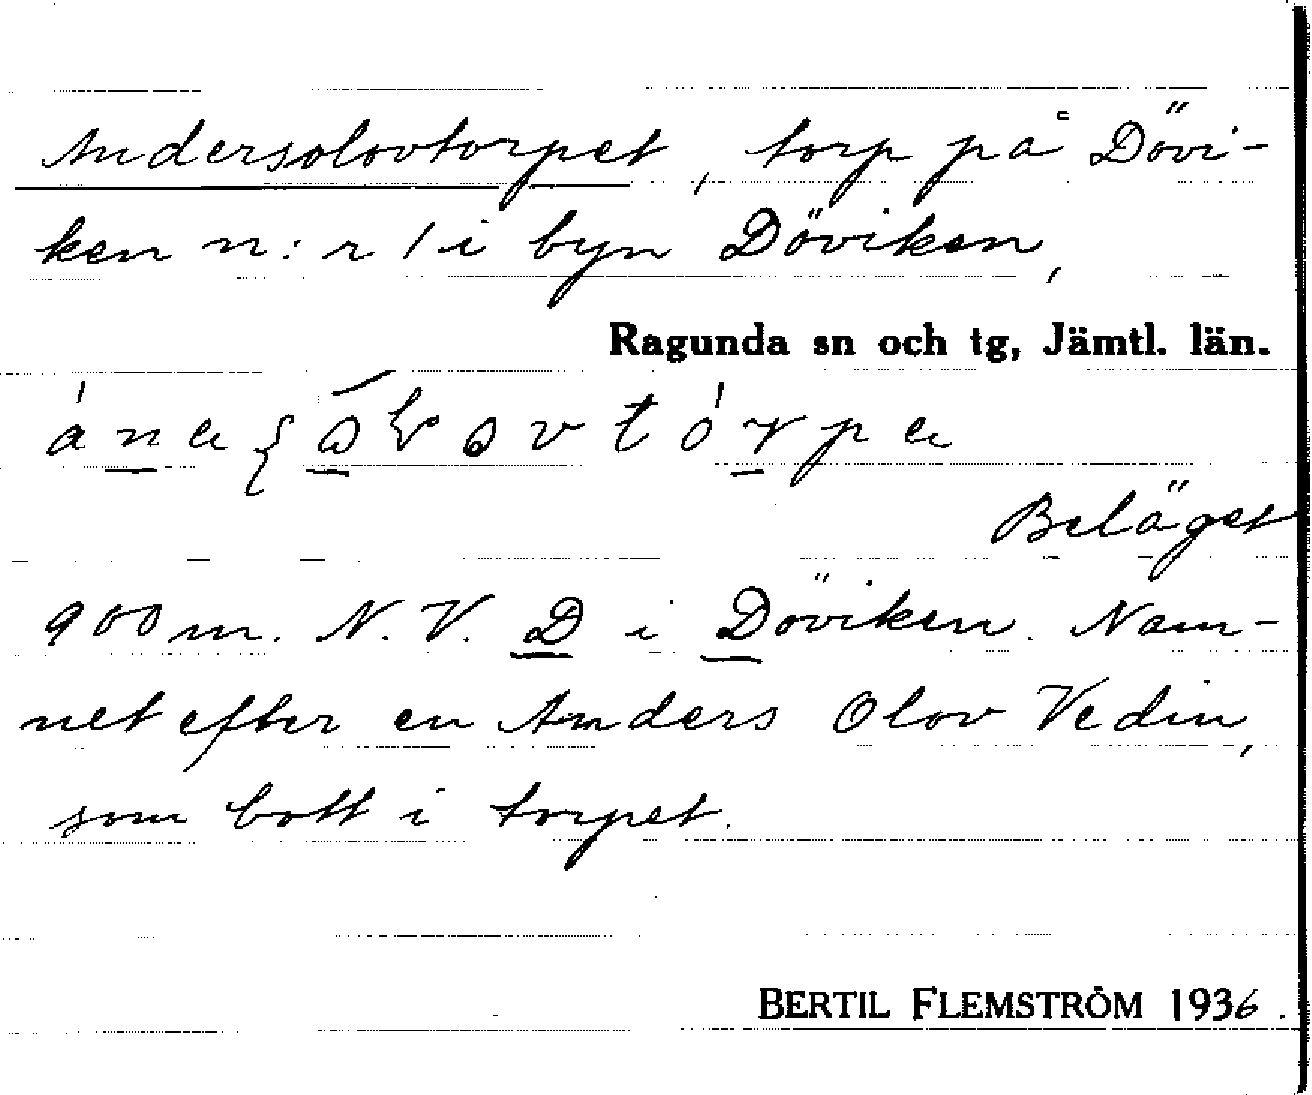 Andersolovtorpet, torp på Dövi-
ken n:r 1 i byn Döviken,
Ragunda sn och tg, Jämtl. län.
Beläget
900 m. N.V. D i Döviken. Nam-
net efter en Anders Olov Vedin,
som bott i torpet.
BERTIL FLEMSTRÖM 1936.